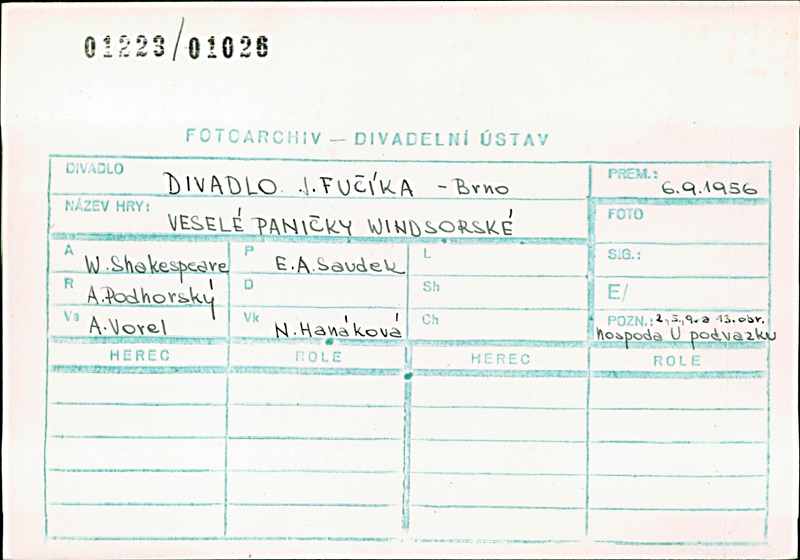 01223/01026
FOTOARCHIV — DIVADELNÍ ÚSTAV
DIVADLO DIVADLO J. FUČÍKA - Brno PREM.: 6.9.1956
NÁZEV HRY: VESELÉ PANIČKY WINDSORSKÉ FOTO
A W. Shakespeare P E.A. Saudek L SIG.:
R A. Podhorský D Sh E/
Vs A. Vorel Vk N. Hanáková Ch POZN.: 2., 5., 9. a 13. obr.
hospoda U podvazku
HEREC ROLE HEREC ROLE